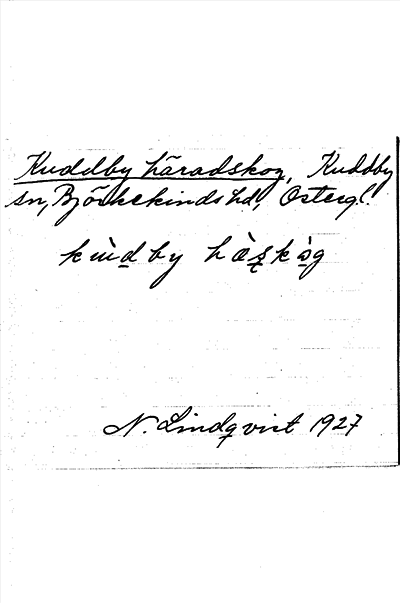 Kuddby häradskog, Kuddby
sn, Björkekinds hd, Österg.
kùd by hæ̀ʂkɔ̀g
N. Lindqvist 1927